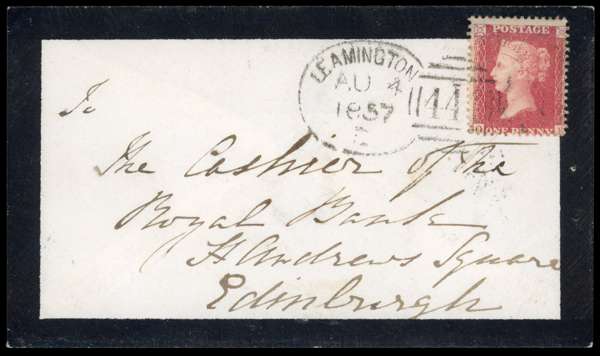 POSTAGE
LEAMINGTON
AU 4
1857
44
ONE PENNY
To
The Cashier of the
Royal Bank
St Andrews Square
Edinburgh